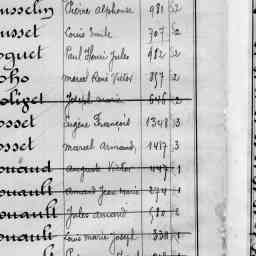 usselin Pierre alphonse 981 S2
usset Louis Emile 707 S2
oquet Paul Henri Jules 482 S2
oho Marcel René Victor 897 2
olizet Joseph Marie 646 2
osset Eugène François 1348 3
osset Marcel Armand 1417 3
ouaud Auguste Victor 447 1
ouault Armand Jean Marie 274 1
ouault Jules Armand 510
ouault Louis Marie Joseph 330 1